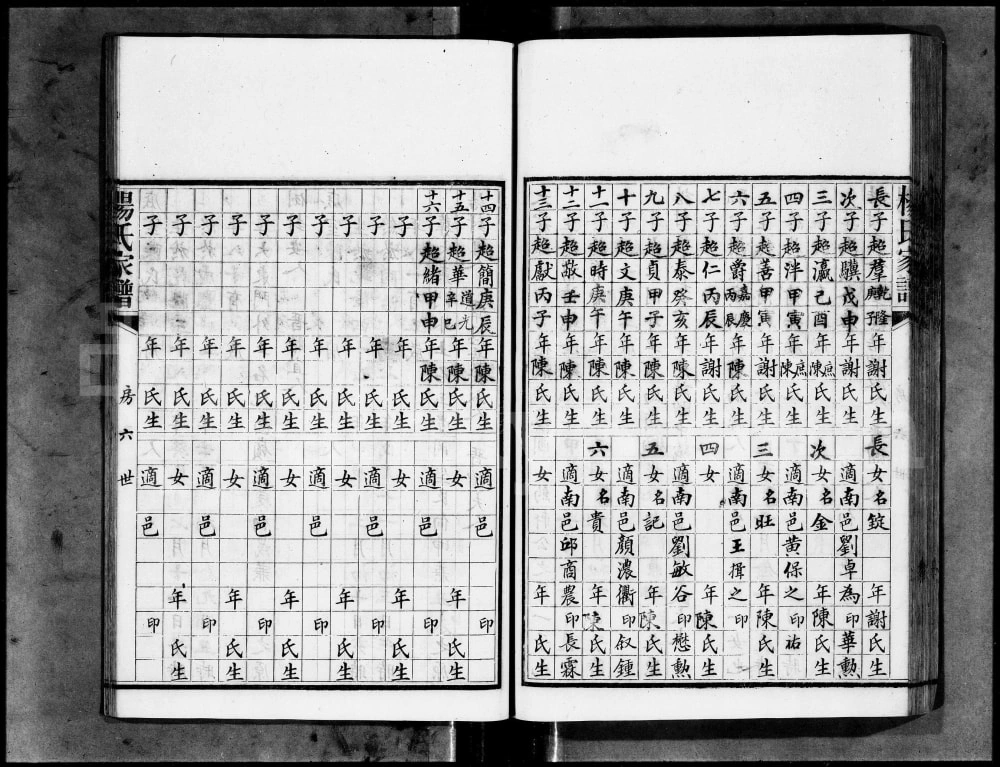 楊氏家譜
長子超羣乾隆年謝氏生
次子超驥戊申年謝氏生
三子超瀛己酉年陳庶氏生
四子超泮甲寅年陳庶氏生
五子超善甲寅年謝氏生
六子超爵嘉慶丙辰年陳氏生
七子超仁丙辰年謝氏生
八子超泰癸亥年陳氏生
九子超貞甲子年陳氏生
十子超文庚午年陳氏生
十一子超時庚午年陳氏生
十二子超敬壬申年陳氏生
十三子超獻丙子年陳氏生
長女名錠年謝氏生
適南邑劉卓為印華勲
次女名金年陳氏生
適南邑黃保之印祐
三女名旺年陳氏生
適南邑王揖之印
四女年陳氏生
適南邑劉敏谷印懋勲
五女名記年陳氏生
適南邑顏濃衢印叙鍾
六女名貴年陳氏生
適南邑邱商農印長霖
女年氏生
十四子超簡庚辰年陳氏生
十五子超華道光辛巳年陳氏生
十六子超緒甲申年陳氏生
子年氏生
子年氏生
子年氏生
子年氏生
子年氏生
子年氏生
子年氏生
子年氏生
子年氏生
子年氏生
適邑印
女年氏生
適邑印
女年氏生
適邑印
女年氏生
適邑印
女年氏生
適邑印
女年氏生
適邑印
女年氏生
適邑印
楊氏家譜
房六世